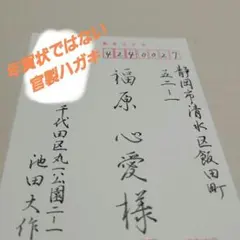 年賀状ではない
官製ハガキ
4240027
静岡市清水区飯田町
五二-一
福原 心愛様
千代田区丸一公園二-一
池田大作